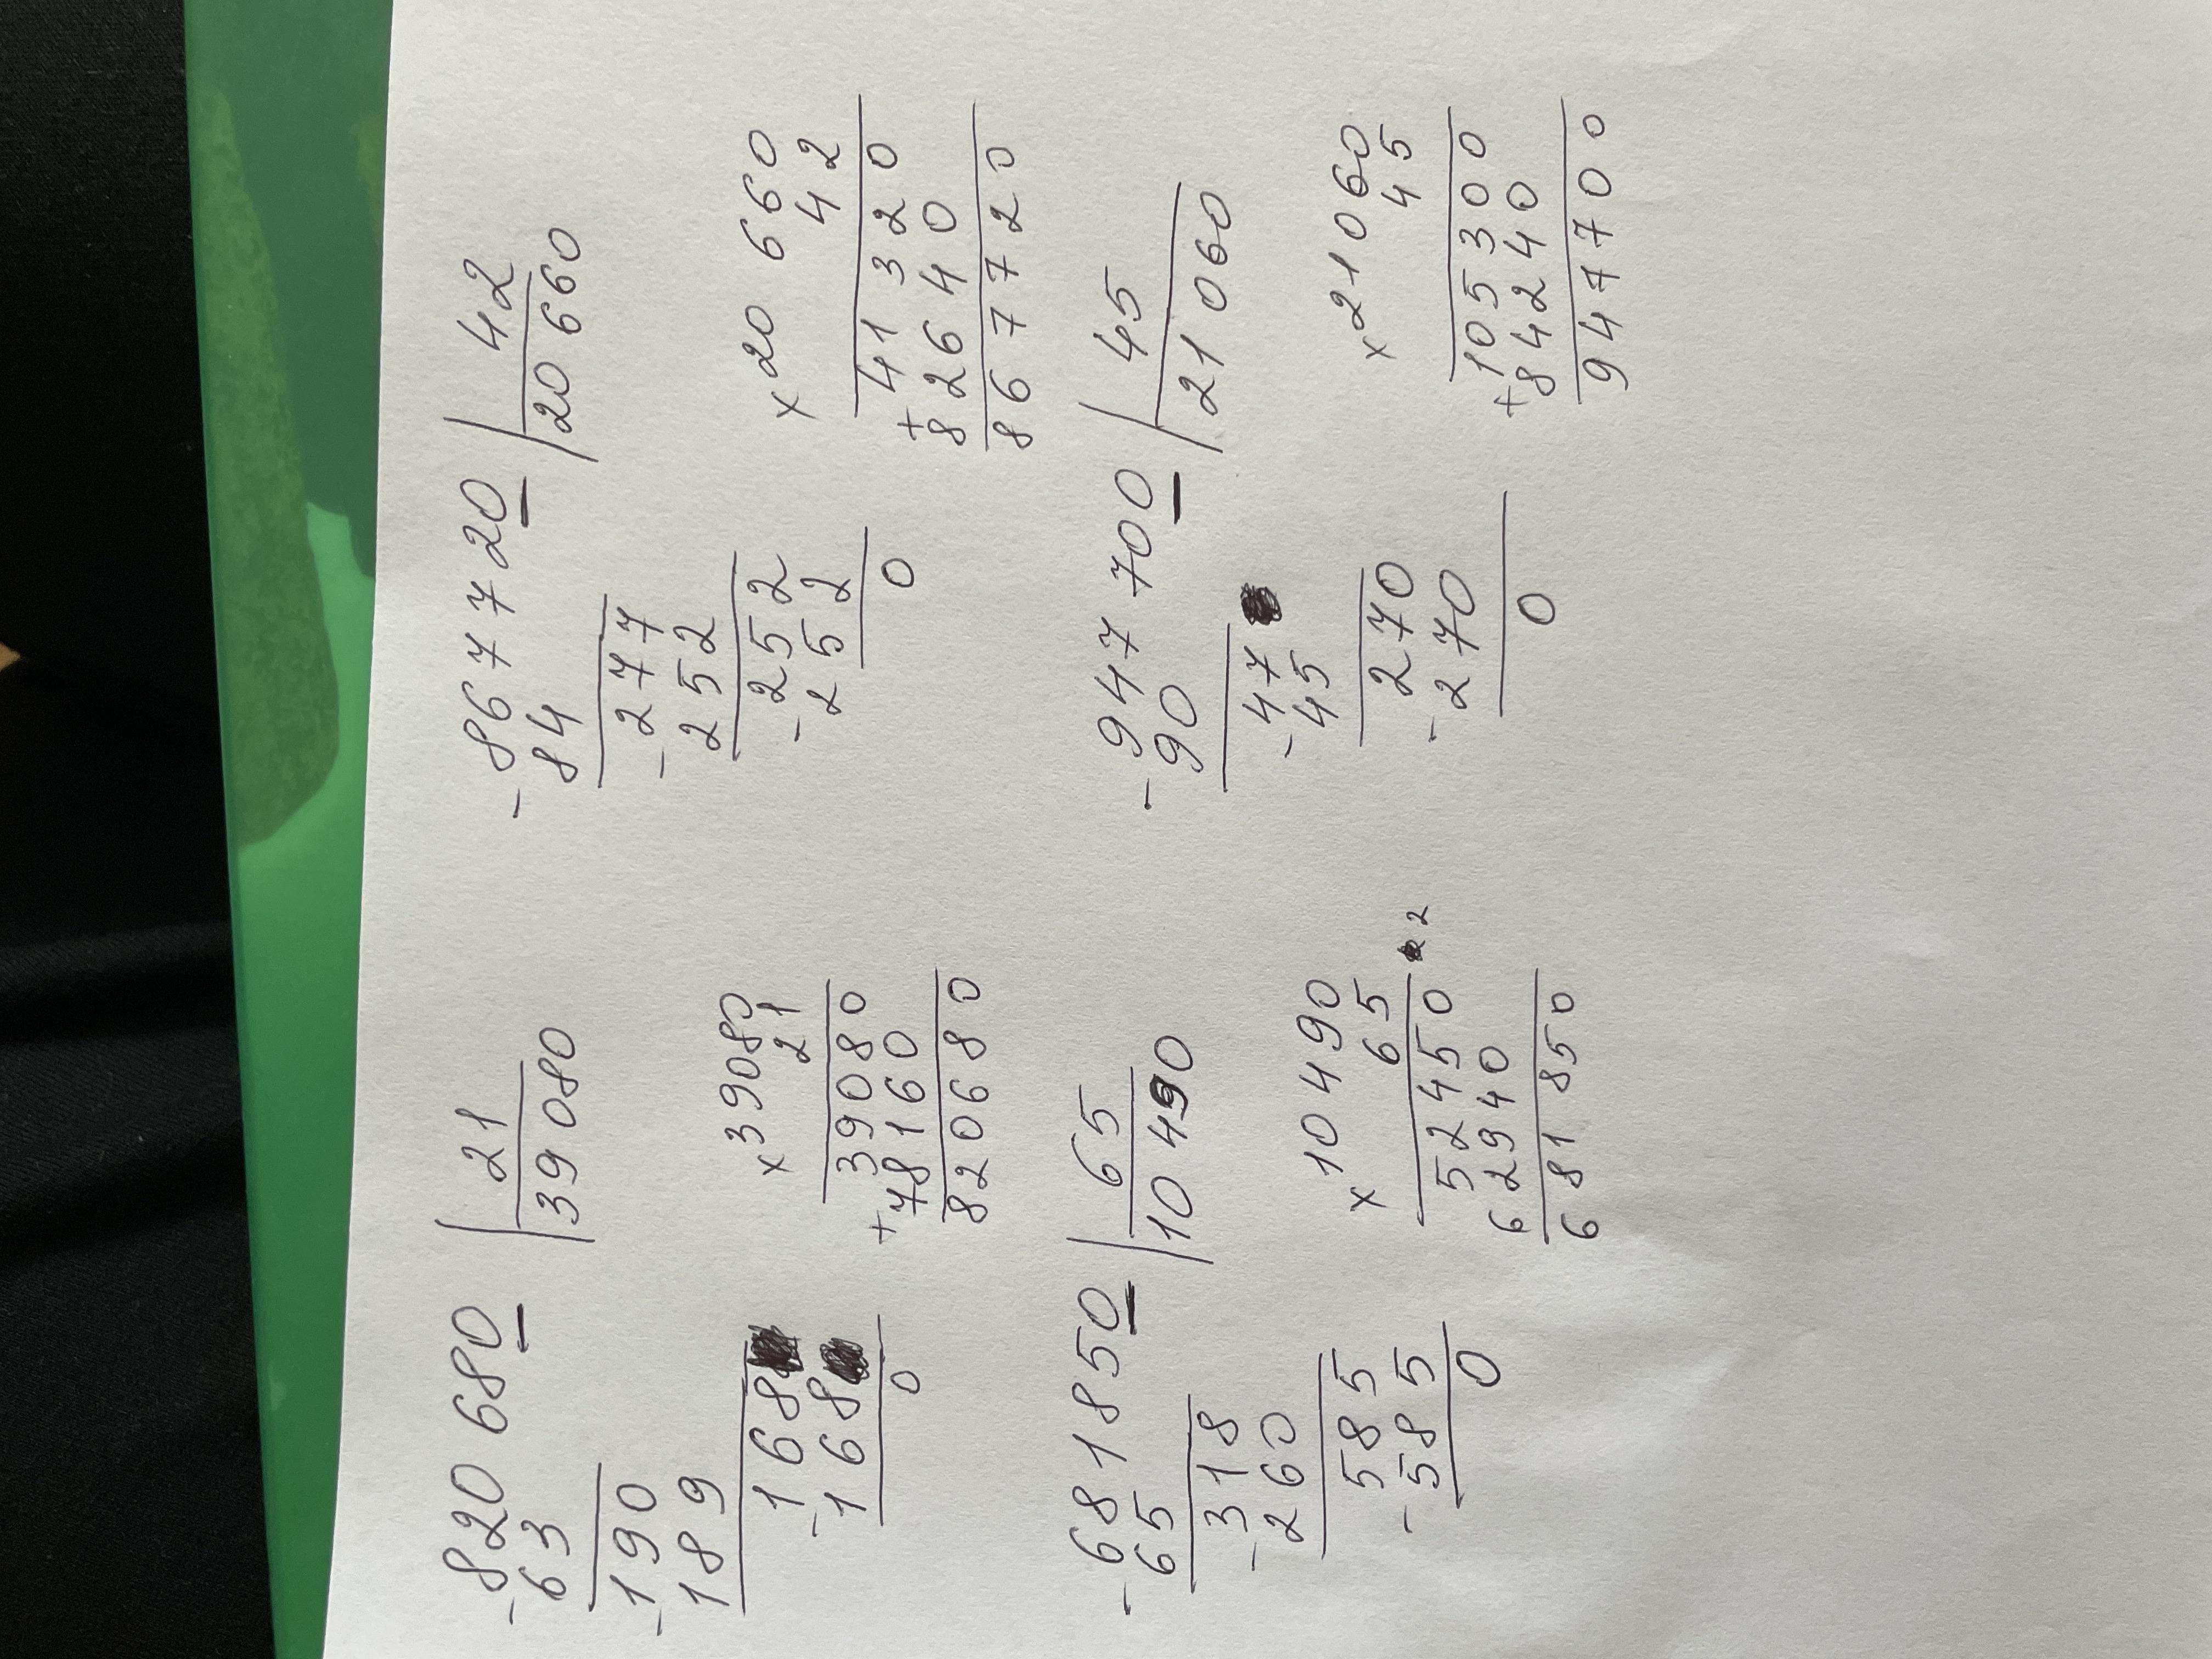 -820 680 | 21
63 39 080
-190
189
-168
-168
0
×39080
21
39080
+78160
820680
-867 720 | 42
84 20 660
-277
252
-252
252
0
×20 660
42
41320
+82640
867720
-681850 | 65
65 10 490
318
-260
585
-585
0
×10490
65
52450 2
62940
681850
-947 700 | 45
90 21 060
-47
45
270
-270
0
×21060
45
105300
+84240
947700